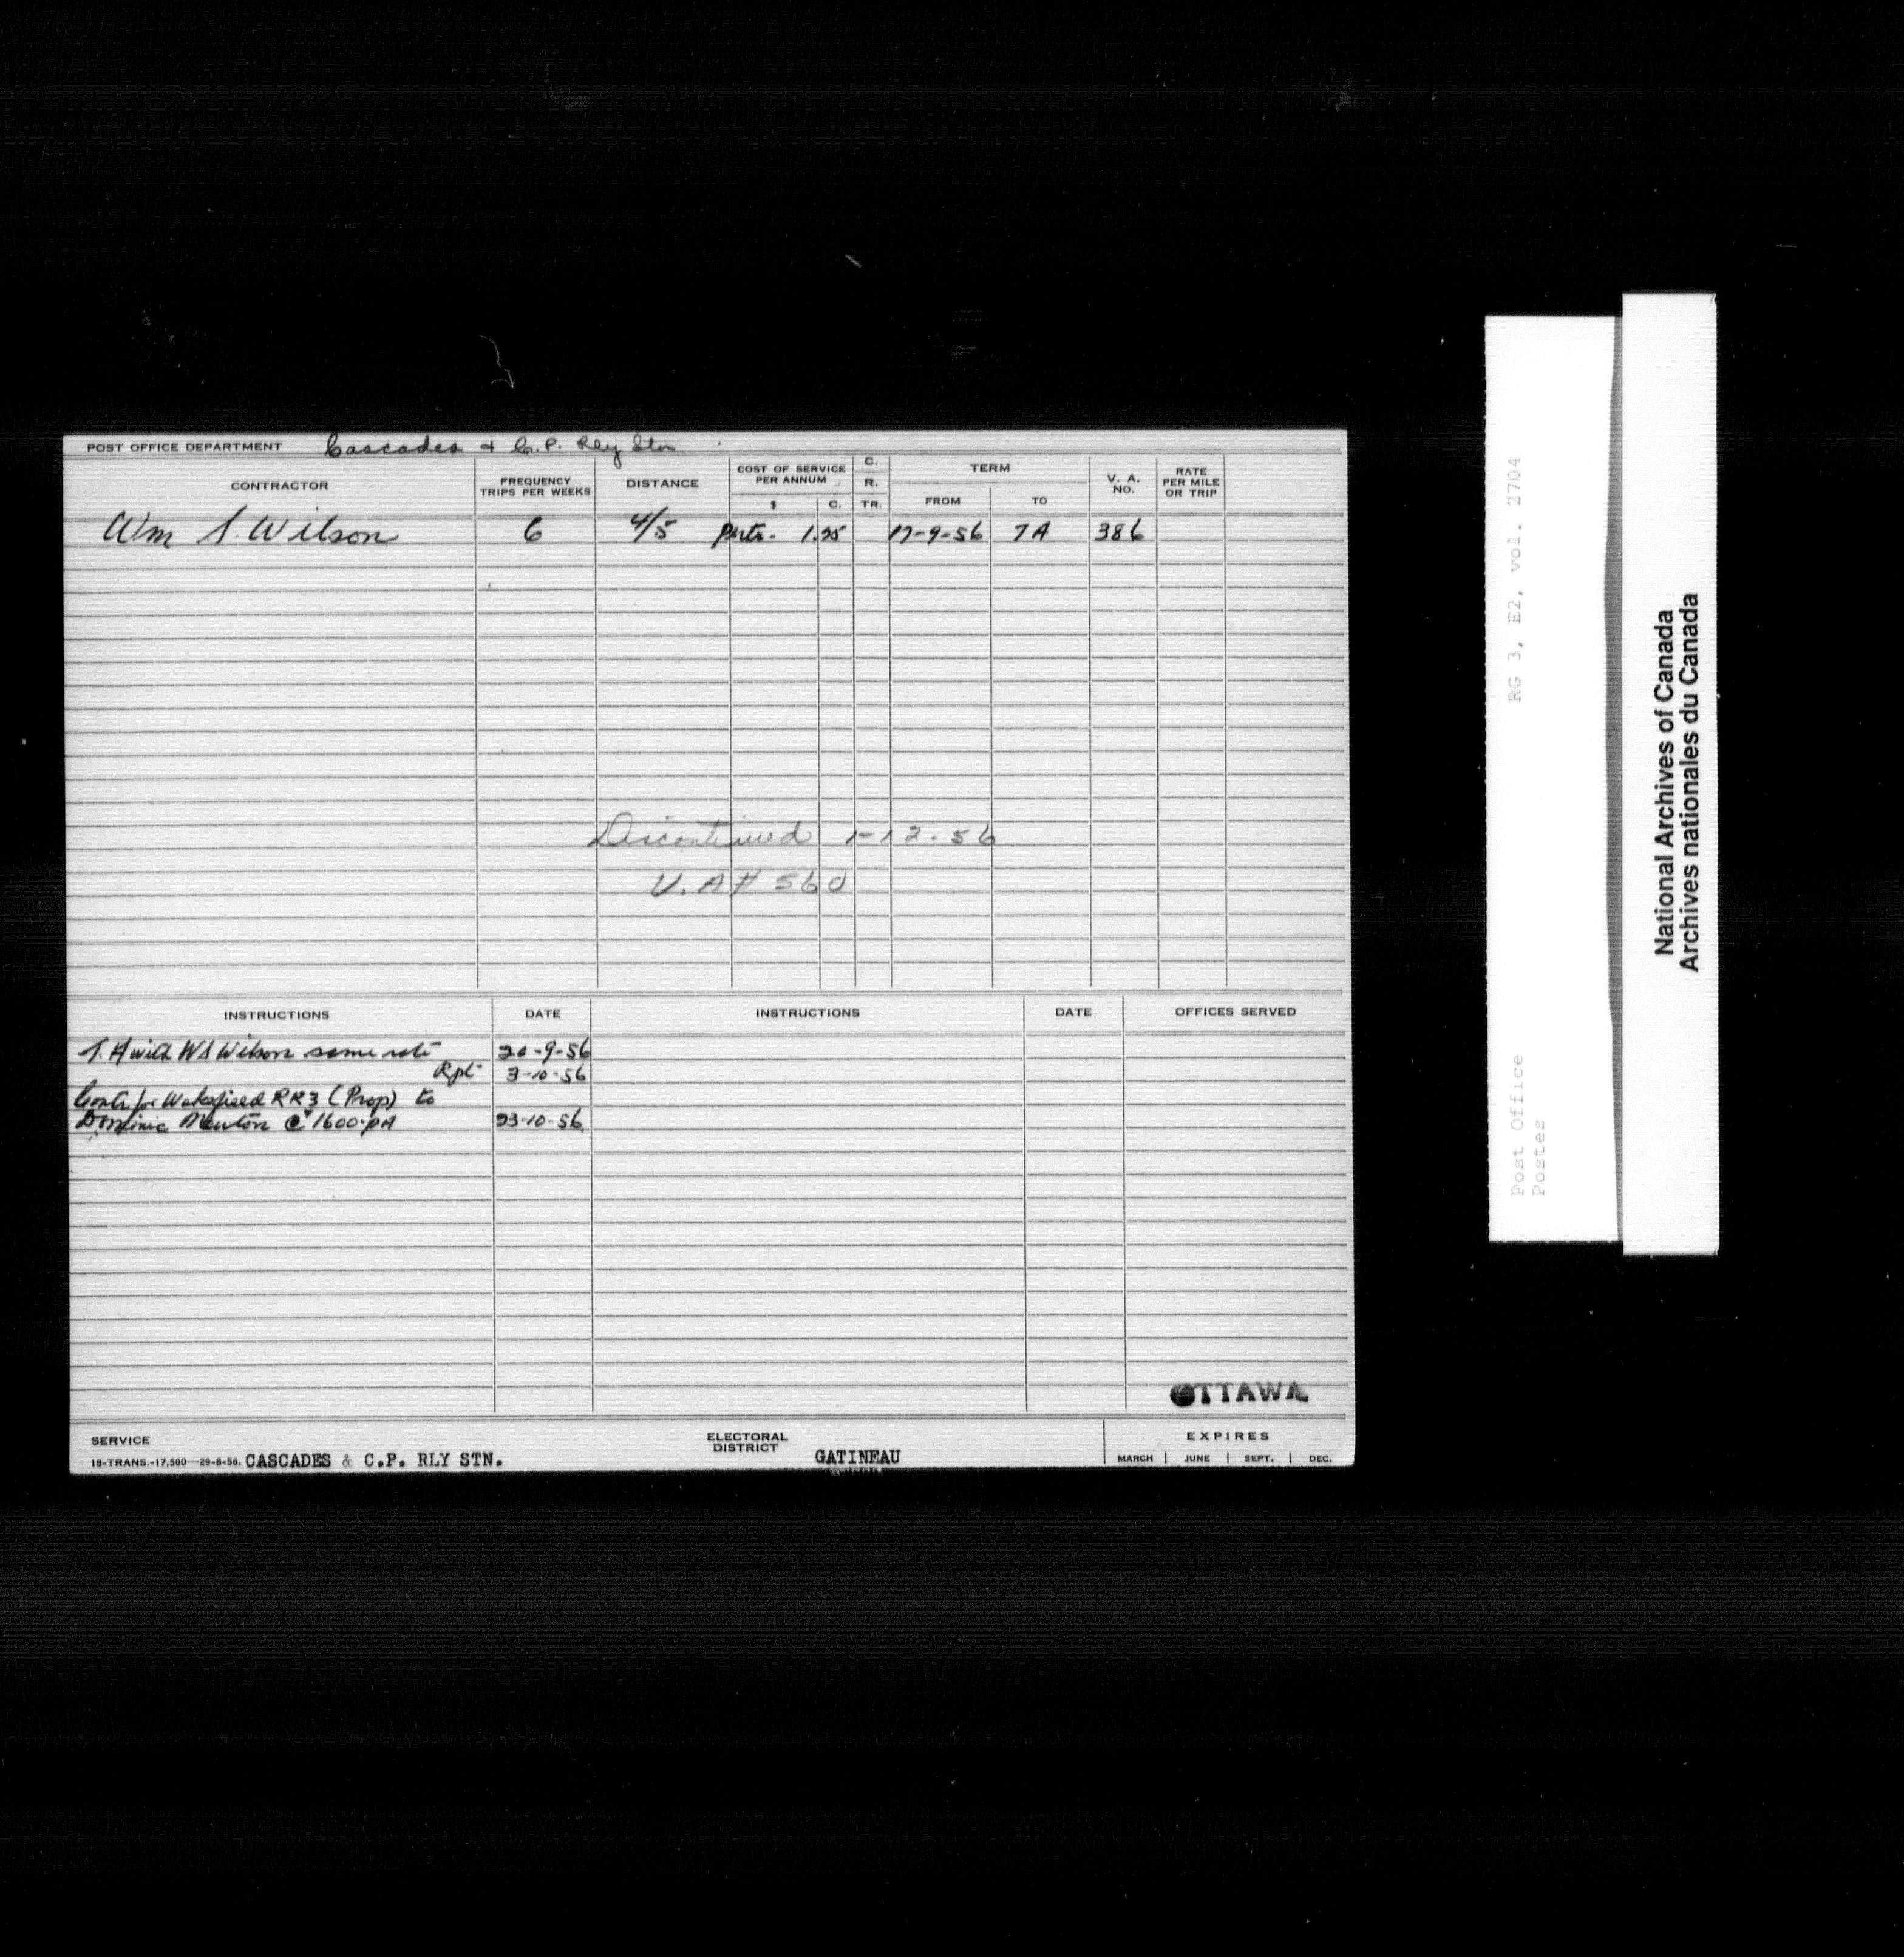 POST OFFICE DEPARTMENT Cascades & C.P. Rly Stn
CONTRACTOR
FREQUENCY TRIPS PER WEEKS
DISTANCE
COST OF SERVICE PER ANNUM
$ C.
C. R. TR.
TERM
FROM TO
V. A. NO.
RATE PER MILE OR TRIP
Wm S. Wilson 6 4/5 Per tr. 1.25 17-9-56 TA 386
Discontinued 1-12-56
V.A# 560
INSTRUCTIONS DATE INSTRUCTIONS DATE OFFICES SERVED
T.A with WS Wilson same rate 20-9-56
Rpt 3-10-56
Contr for Wakefield RR3 (Prop) to
Dominic Newton @ 1600.pA 23-10-56
OTTAWA
SERVICE
18-TRANS.-17,500-29-8-56. CASCADES & C.P. RLY STN.
ELECTORAL DISTRICT
GATINEAU
EXPIRES
MARCH | JUNE | SEPT. | DEC.
RG 3, E2, vol. 2704
Post Office
Postes
National Archives of Canada
Archives nationales du Canada